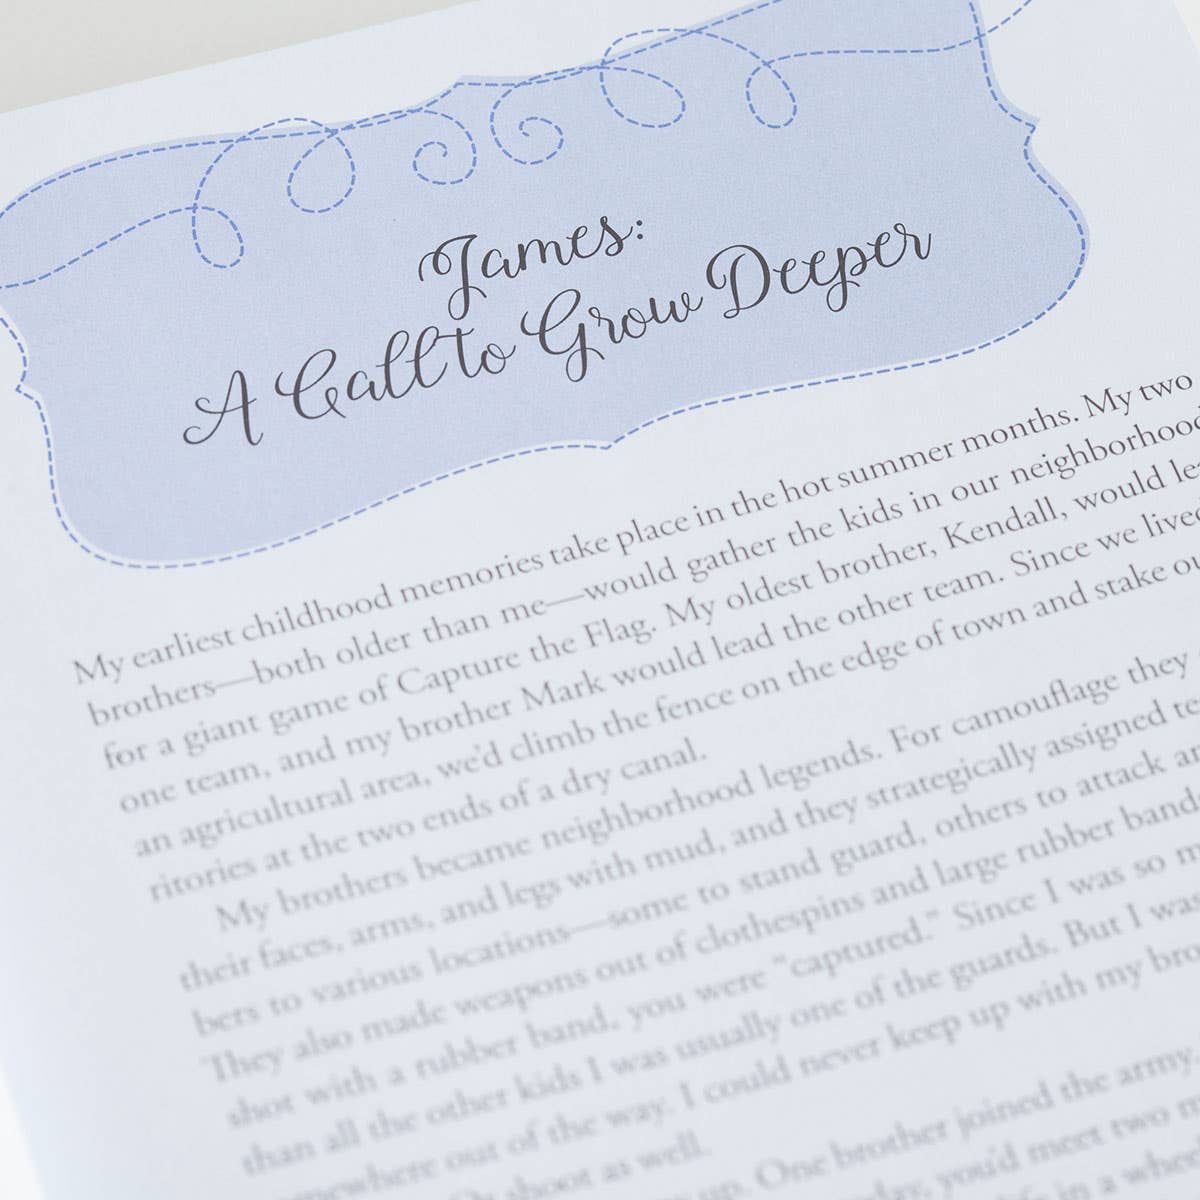 James:
A Call to Grow Deeper
My earliest childhood memories take place in the hot summer months. My two
brothers—both older than me—would gather the kids in our neighborhood
for a giant game of Capture the Flag. My oldest brother, Kendall, would
one team, and my brother Mark would lead the other team. Since we lived
an agricultural area, we'd climb the fence on the edge of town and stake
ritories at the two ends of a dry canal.
My brothers became neighborhood legends. For camouflage they
their faces, arms, and legs with mud, and they strategically assigned
bers to various locations—some to stand guard, others to attack
They also made weapons out of clothespins and large rubber band
shot with a rubber band, you were "captured." Since I was so
than all the other kids I was usually one of the guards. But I was
somewhere out of the way. I could never keep up with my
shoot as well.
up. One brother joined the army
you'd meet two
in a